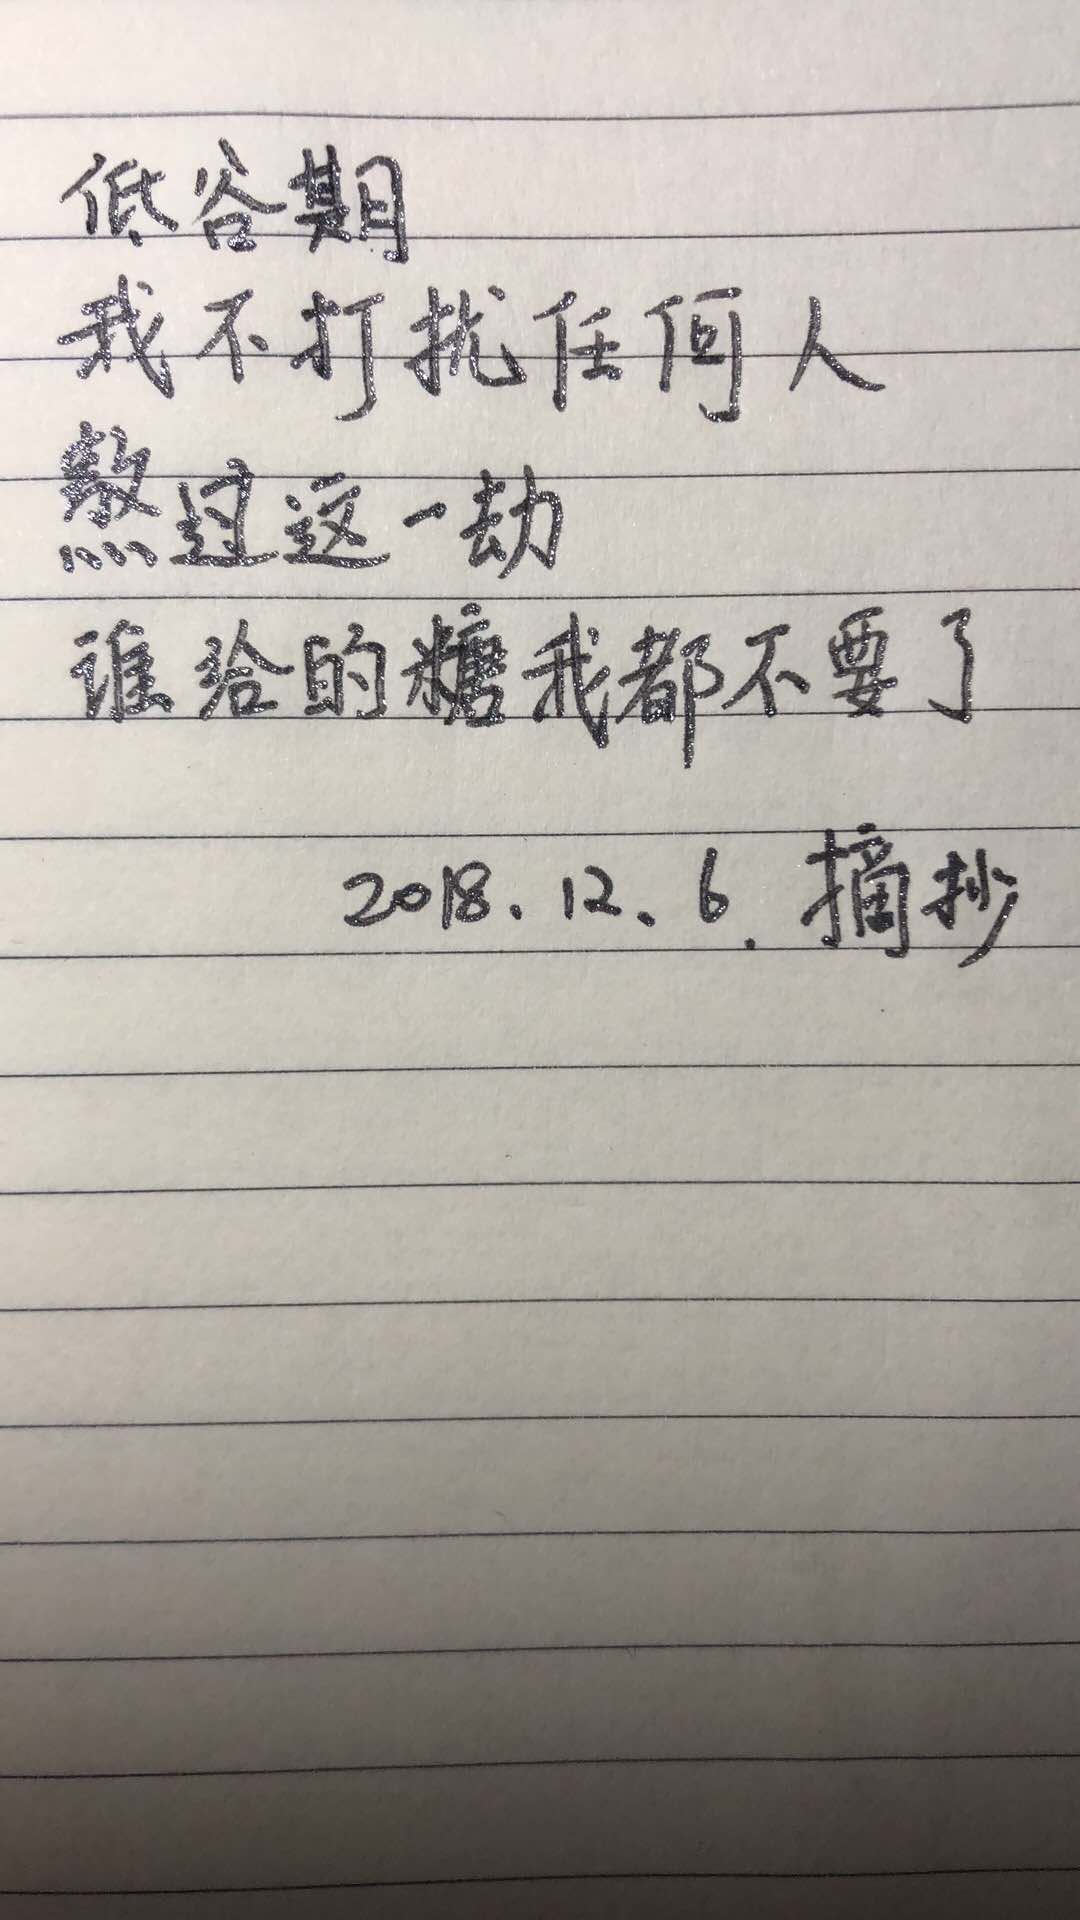 低谷期
我不打扰任何人
熬过这一劫
谁给的糖我都不要了
2018.12.6.摘抄